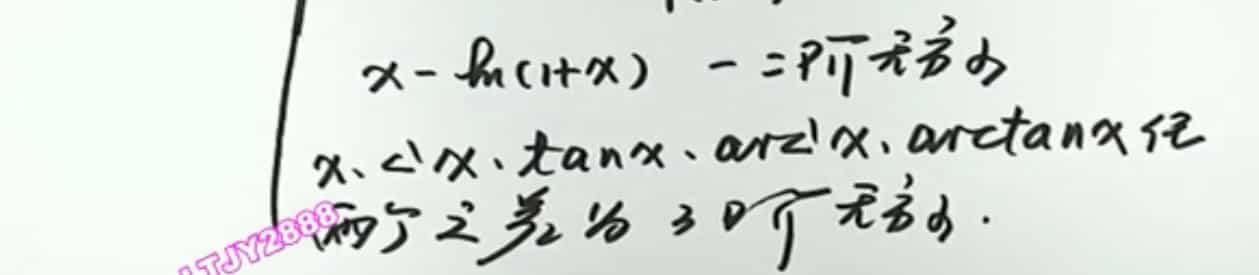 x - ln(1+x) — 二阶无穷小
x、sin x、tanx、arcsin x、arctanx 任
两个之差为 3 阶无穷小.
LTJY2888